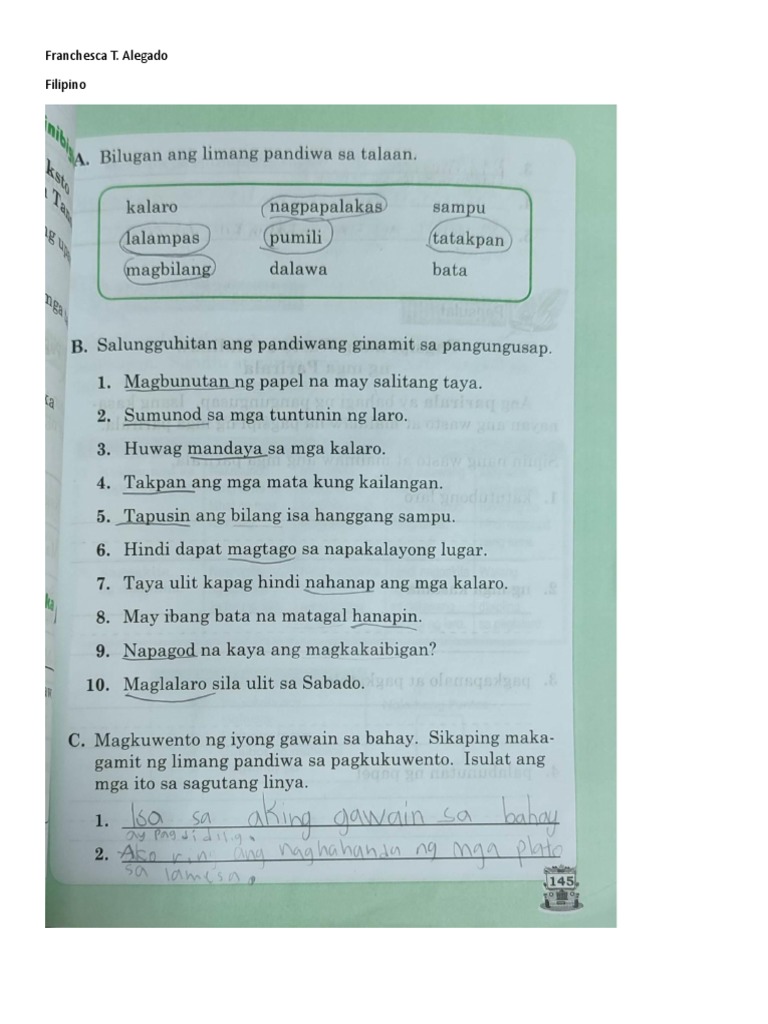 Franchesca T. Alegado
Filipino
A. Bilugan ang limang pandiwa sa talaan.
kalaro nagpapalakas sampu
lalampas pumili tatakpan
magbilang dalawa bata
B. Salungguhitan ang pandiwang ginamit sa pangungusap.
1. Magbunutan ng papel na may salitang taya.
2. Sumunod sa mga tuntunin ng laro.
3. Huwag mandaya sa mga kalaro.
4. Takpan ang mga mata kung kailangan.
5. Tapusin ang bilang isa hanggang sampu.
6. Hindi dapat magtago sa napakalayong lugar.
7. Taya ulit kapag hindi nahanap ang mga kalaro.
8. May ibang bata na matagal hanapin.
9. Napagod na kaya ang magkakaibigan?
10. Maglalaro sila ulit sa Sabado.
C. Magkuwento ng iyong gawain sa bahay. Sikaping maka-
gamit ng limang pandiwa sa pagkukuwento. Isulat ang
mga ito sa sagutang linya.
1. Isa sa aking gawain sa bahay
ay pagdidilig.
2. Ako rin ang naghahanda ng mga plato
sa lamesa.
145